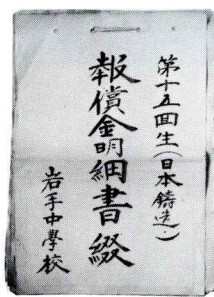 第十五回生(日本鋳造)
報償金明細書綴
岩手中學校